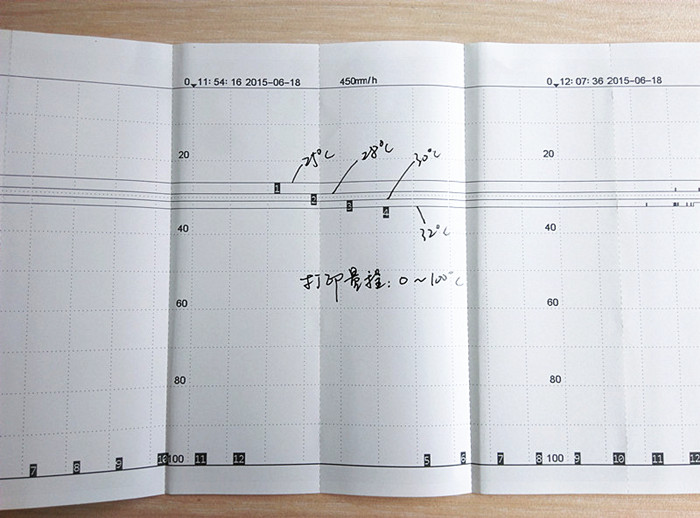 0 11:54:16 2015-06-18 450mm/h 0 12:07:36 2015-06-18
20 25℃ 28℃ 30℃ 20
1
2
3 4
40 32℃ 40
打印量程: 0~100℃
60 60
80 80
7 8 9 10 100 11 12 5 6 7 8 100 9 10 11 12